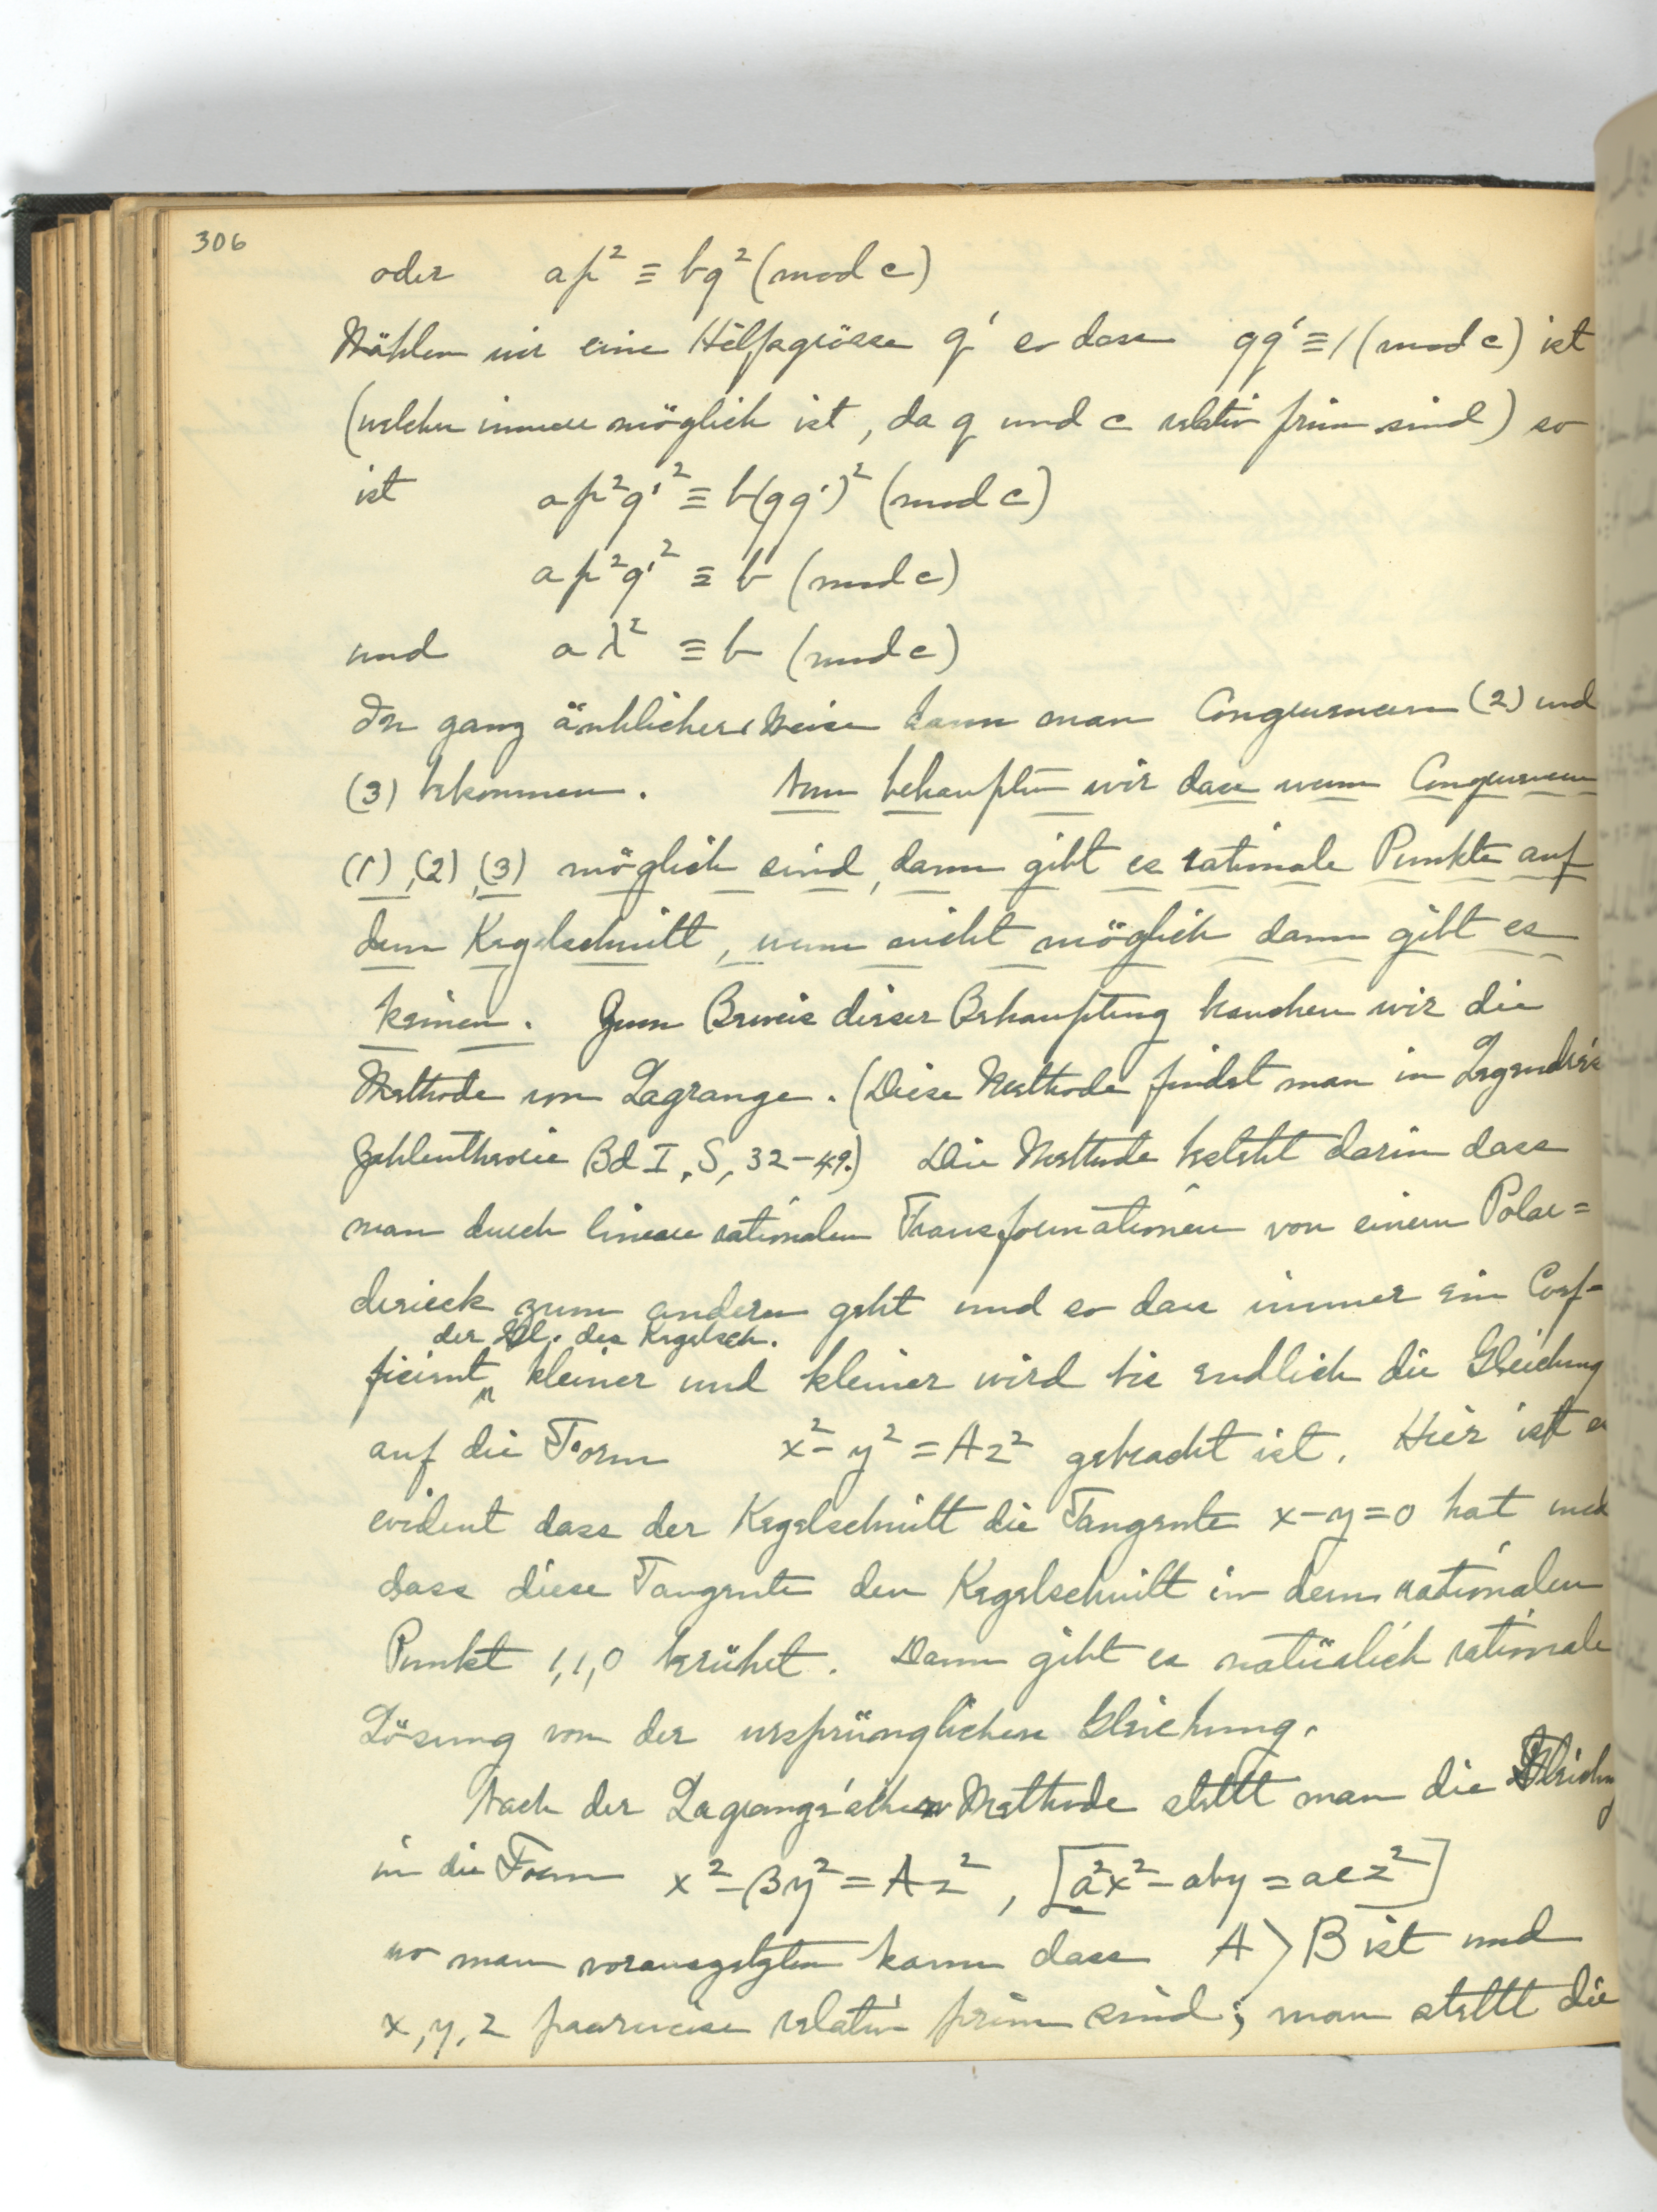 306
oder ap² ≡ bq² (mod c)
Wählen wir eine Hilfsgrösse q' so dass qq' ≡ 1 (mod c) ist
(welches immer möglich ist, da q und c relativ prim sind) so
ist ap²q'² ≡ b(qq')² (mod c)
ap²q'² ≡ b (mod c)
und aλ² ≡ b (mod c)
In ganz änhlicher Weise kann man Congruenzen (2) und
(3) bekommen. Nun behaupten wir dass wenn Congruenzen
(1), (2), (3) möglich sind, dann gibt es rationale Punkte auf
dem Kegelschnitt, wenn nicht möglich dann gibt es
keinen. Zum Beweis dieser Behauptung brauchen wir die
Methode von Lagrange. (Diese Methode findet man in Legendre's
Zahlentheorie Bd I, S, 32-49.) Die Methode besteht darin dass
man durch lineare rationalen Transformationen von einem Polar=
dreieck zum anderen geht und so dass immer ein Coef-
der Gl. des Kegelsch.
ficient kleiner und kleiner wird bis endlich die Gleichung
auf die Form x² - y² = Az² gebracht ist. Hier ist es
evident dass der Kegelschnitt die Tangente x-y=0 hat und
dass diese Tangente den Kegelschnitt in dem rationalen
Punkt 1,1,0 berühet. Dann gibt es natürlich rationale
Lösung von der ursprünglichen Gleichung.
Nach der Lagrange'schen Methode stellt man die Gleichung
in die Form x² - By² = Az², [a²x² - aby = acz²]
wo man voraussetzten kann dass A > B ist und
x, y, z paarweise relativ prim sind; man stellt die